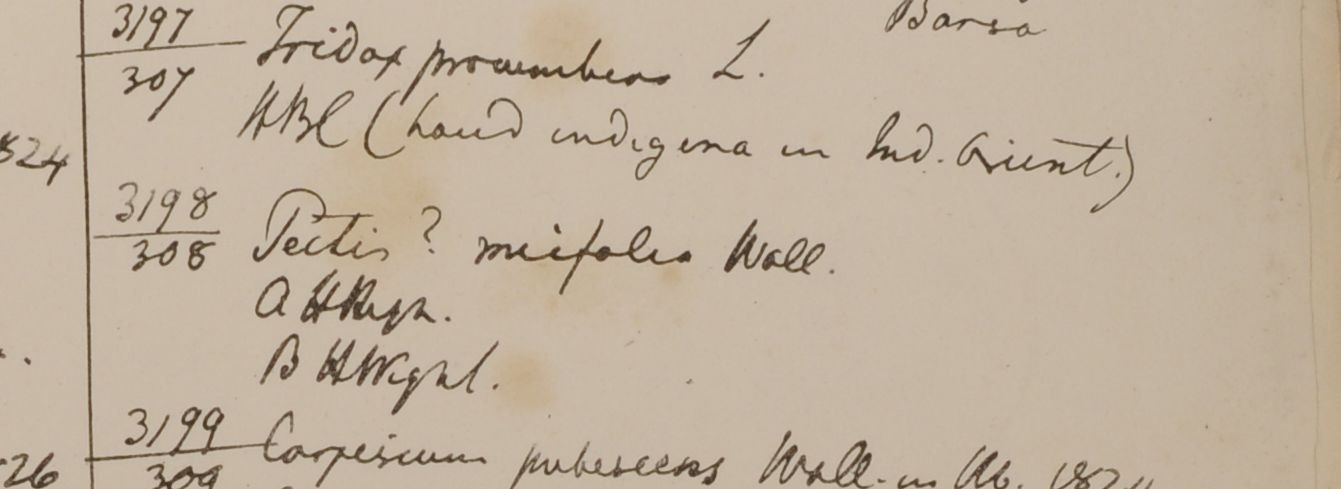 Barsa
3197 Tridax procumbens L.
307
HBC (haud indigena in Ind. Orient.)
824
3198
308 Pectis? meifolia Wall.
A HHeyn.
B HWight.
3199 Carpesium pubescens Wall. in Hb. 1824
26 309